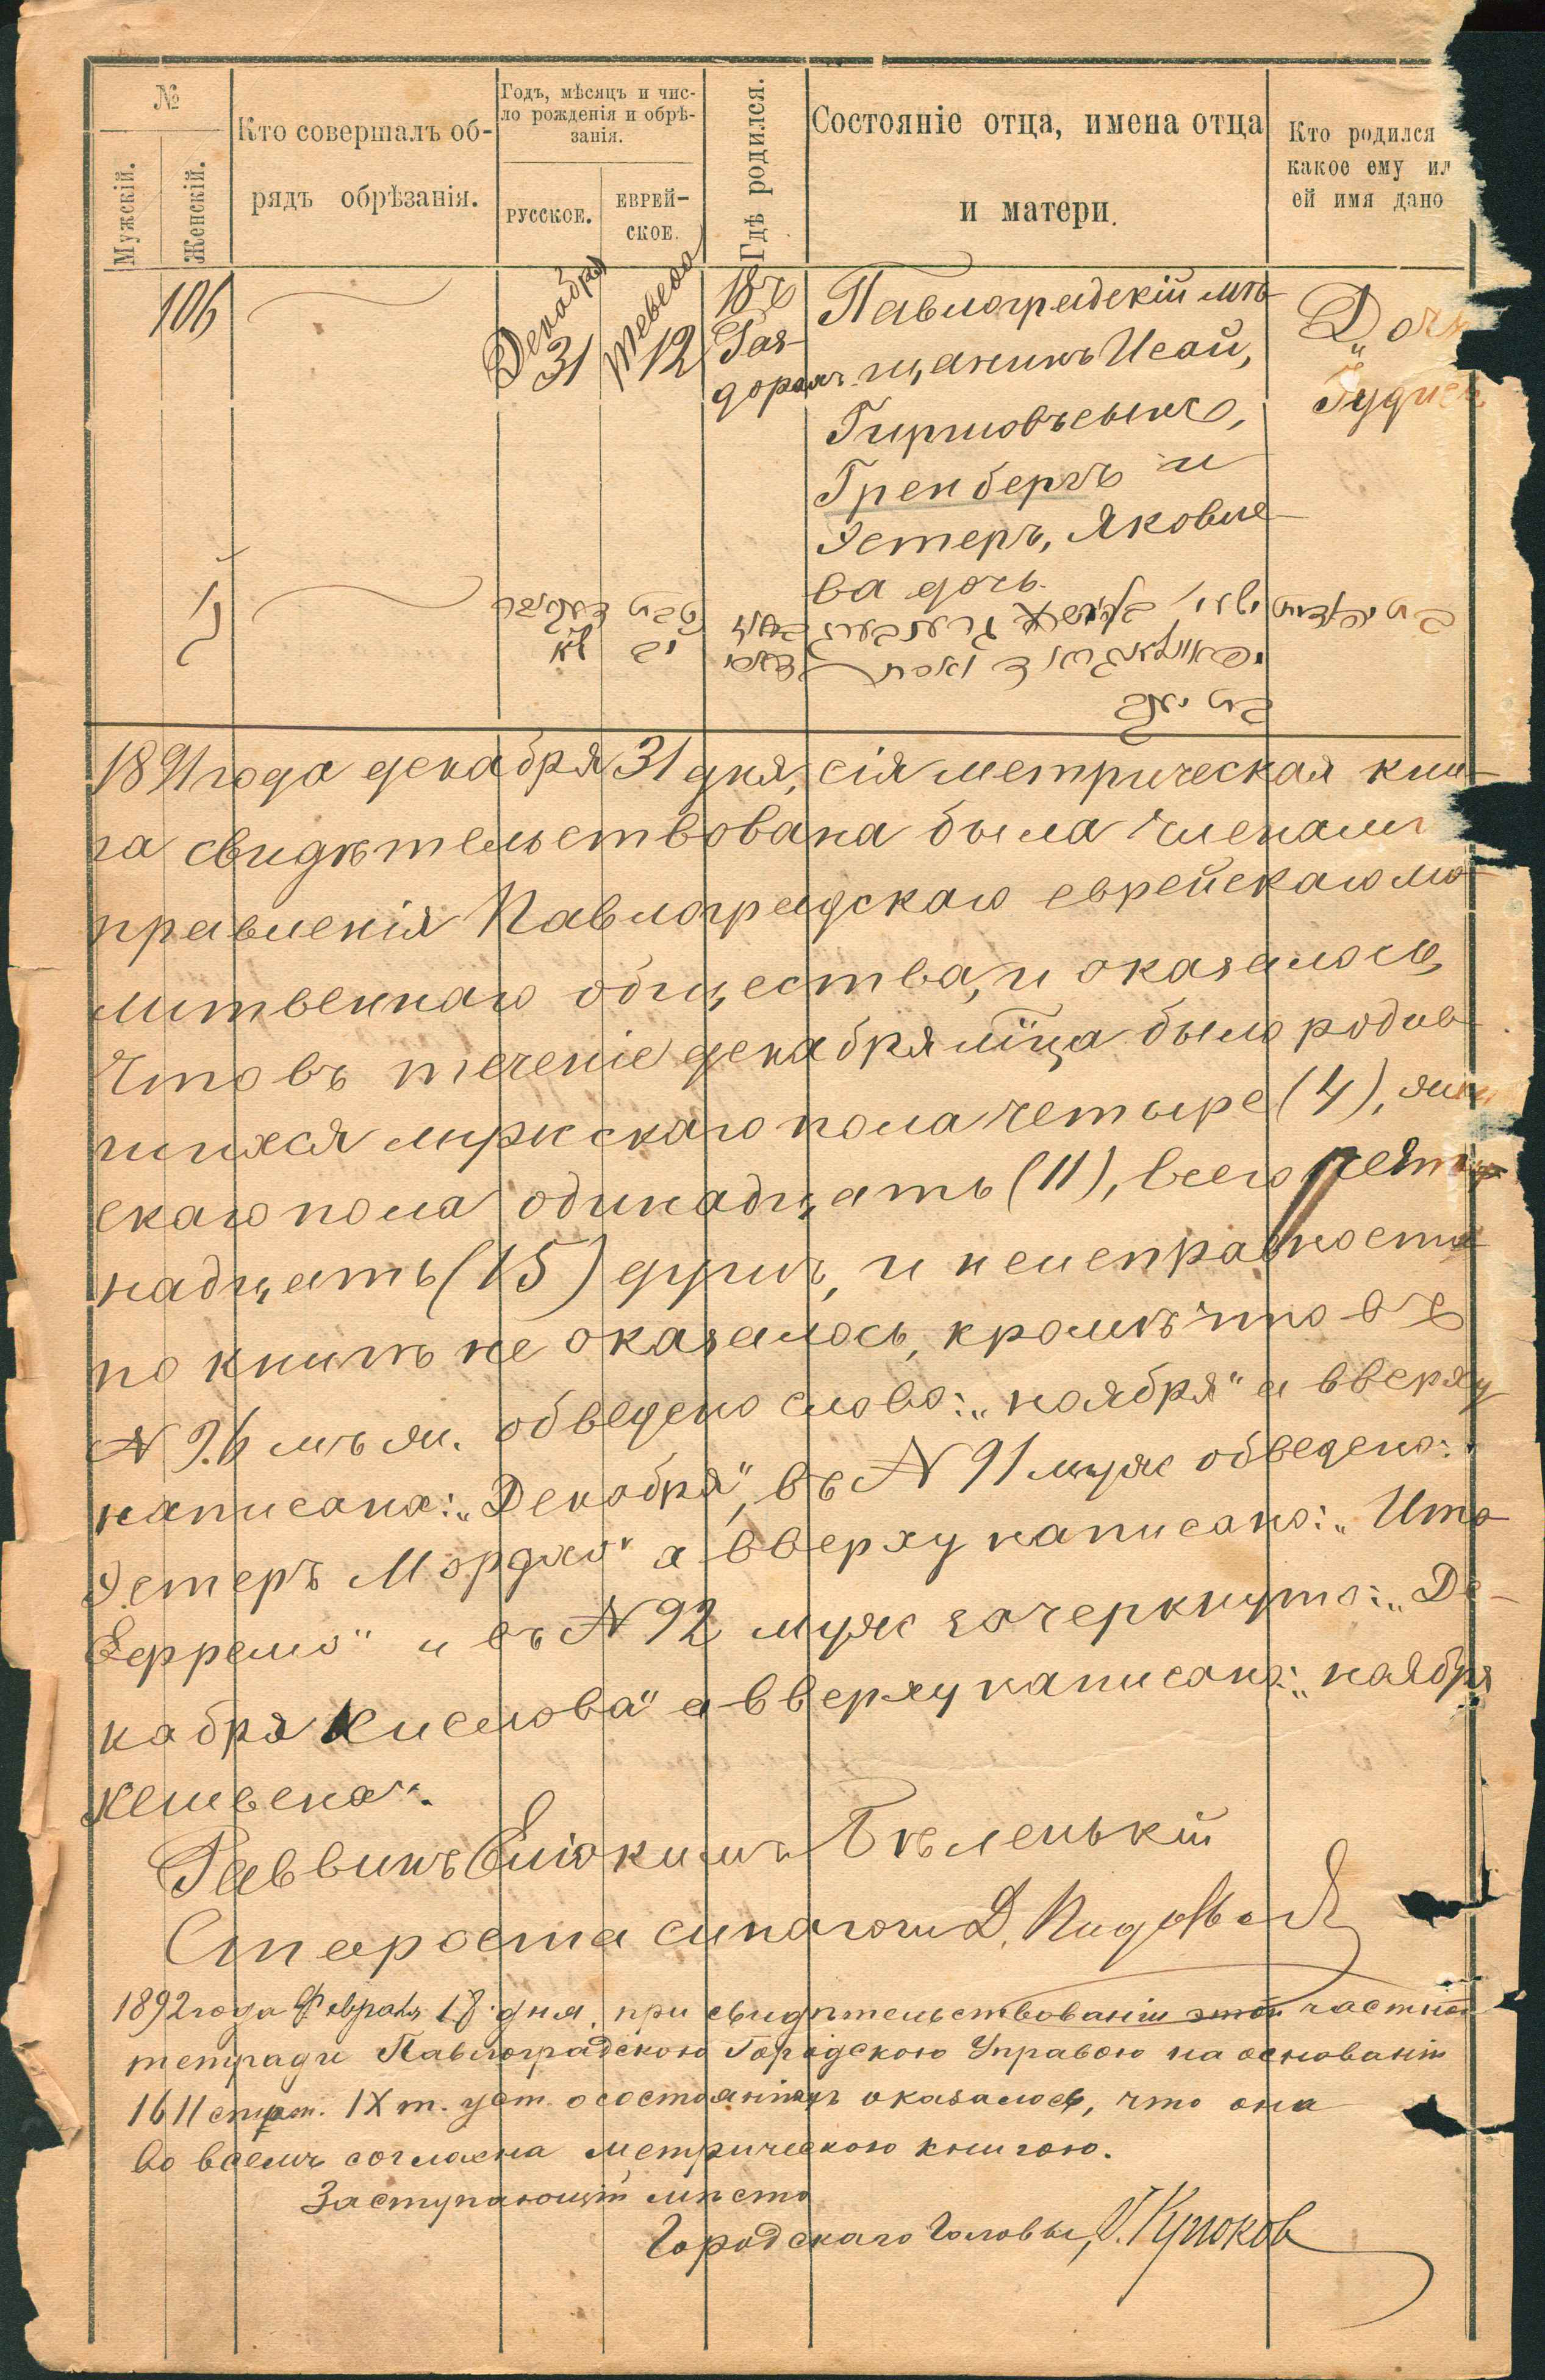 №
Мужскій.
Женскій.
Кто совершалъ об-
рядъ обрѣзанія.
Годъ, мѣсяцъ и чис-
ло рожденія и обрѣ-
занія.
РУССКОЕ.
ЕВРЕЙ-
СКОЕ.
Гдѣ родился.
Состояніе отца, имена отца
и матери.
Кто родился
какое ему ил
ей имя дано
106
Декабря
31
Тевеса
12
Павлоградскій мѣ-
щанинъ Исай,
Гиршовъ сынъ,
Гренбергъ и
Эстеръ, Яковле-
ва дочь.
Дочь
1891 года декабря 31 дня, сія метрическая кни-
га свидѣтельствована была членами
правленія Павлоградскаго еврейскаго мо-
литвеннаго общества, и оказалось,
что въ теченіе декабря мца было родив-
шихся мужскаго пола четыре (4), жен
скаго пола одинадцать (11), всего пят-
надцать (15) душъ, и неисправности
по книгѣ не оказалось, кромѣ что въ
№ 96 обведено слово: „ноября" а вверху
написана: „Декабря", въ № 91 муж обведено:
Эстеръ Мордко" а вверху написано: „Ита
и въ № 92 муж зачеркнуто: „Де-
кабря Кислова" а вверху написана: „ноября
Хешвена".
Раввинъ Еліокимъ Бѣленькій
Староста синагоги Д.
1892 года Февраля 18 дня, при свидѣтельствованіи этой частной
тетради Павлоградскою Городскою Управою на основаніи
1611 IX т. уст. о состояніяхъ оказалось, что она
во всемъ согласна метрическою книгою.
Заступающій мѣсто
Городскаго Головы, Крюков